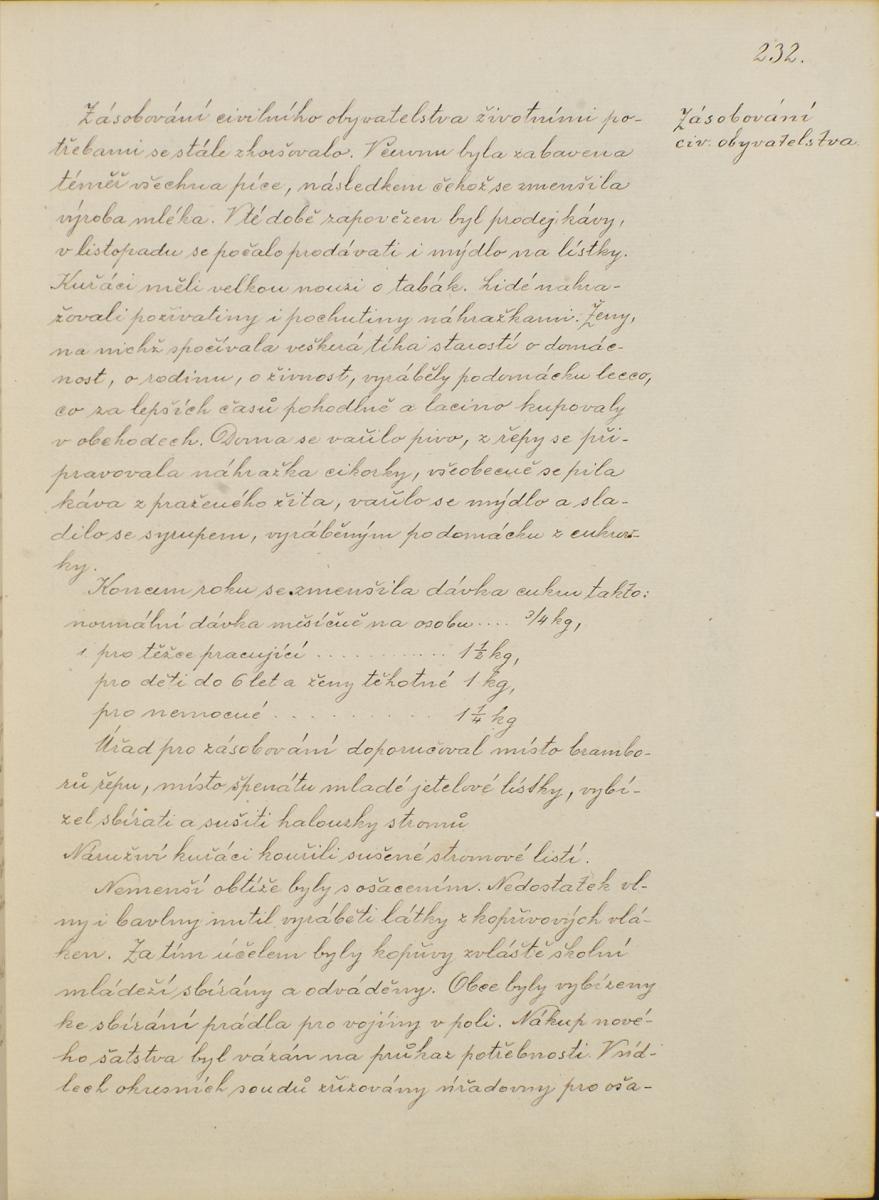 232.
Zásobování civilního obyvatelstva životními po-
třebami se stále zhoršovalo. V červnu byla zabavena
téměř všechna píce, následkem čehož se zmenšila
výroba mléka. V té době zapovězen byl prodej kávy,
v listopadu se počalo prodávati i mýdlo na lístky.
Kuřáci měli velkou nouzi o tabák. Lidé nahra-
žovali poživatiny i pochutiny náhražkami. Ženy,
na nichž spočívala veškerá tíha starostí o domác-
nost, o rodinu, o živnost, vyráběly podomácku lecco,
co za lepších časů pohodlně a lacino kupovaly
v obchodech. Doma se vařilo pivo, z řepy se při-
pravovala náhražka cikorky, všeobecně se pila
káva z praženého žita, vařilo se mýdlo a sla-
dilo se syrupem, vyráběným podomácku z cukrov-
ky.
Koncem roku se zmenšila dávka cukru takto:
normální dávka měsíčně na osobu .... 3/4 kg,
pro těžce pracující ............ 1 1/2 kg,
pro děti do 6 let a ženy těhotné 1 kg,
pro nemocné . . . . . . . . . 1 1/4 kg
Úřad pro zásobování doporučoval místo brambo-
rů řepu, místo špenátu mladé jetelové lístky, vybí-
zel sbírati a sušiti halouzky stromů
Náruživí kuřáci kouřili sušené stromové listí.
Nemenší obtíže byly s ošacením. Nedostatek vl-
ny i bavlny nutil vyráběti látky z kopřivových vlá-
ken. Za tím účelem byly kopřivy zvláště školní
mládeží sbírány a odváděny. Obce byly vybízeny
ke sbírání prádla pro vojíny v poli. Nákup nové-
ho šatstva byl vázán na průkaz potřebnosti. V síd-
lech okresních soudů zřizovány úřadovny pro oša-
Zásobování
civ. obyvatelstva